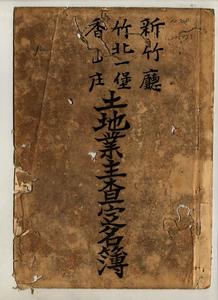 新竹廳
竹北一堡
香山庄
土地業主查定名簿